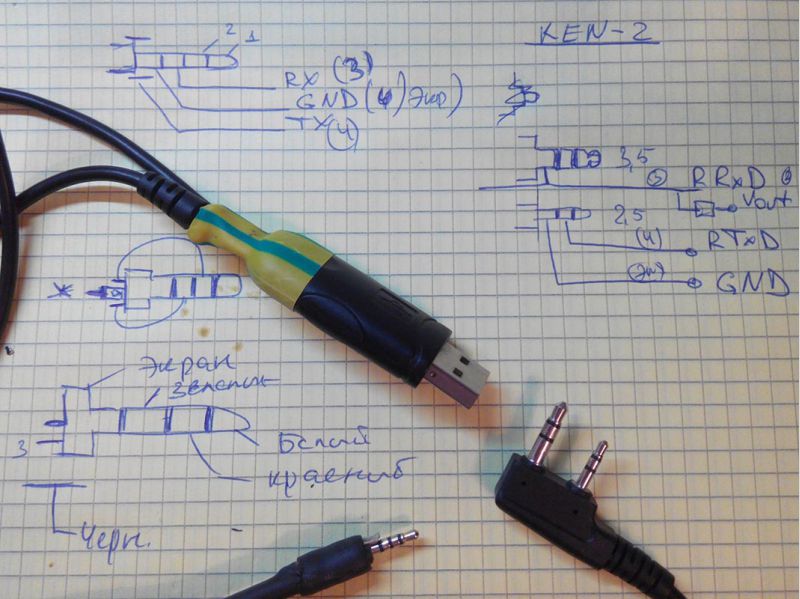 2 1
RX (3)
GND (4) Экр)
TX (ч)
KEN-2
3,5
RRxD
Vout
2,5
(ч)
RTxD
(Эк)
GND
Ж
Экран
Зелёный
З
Белый
красный
Черн.